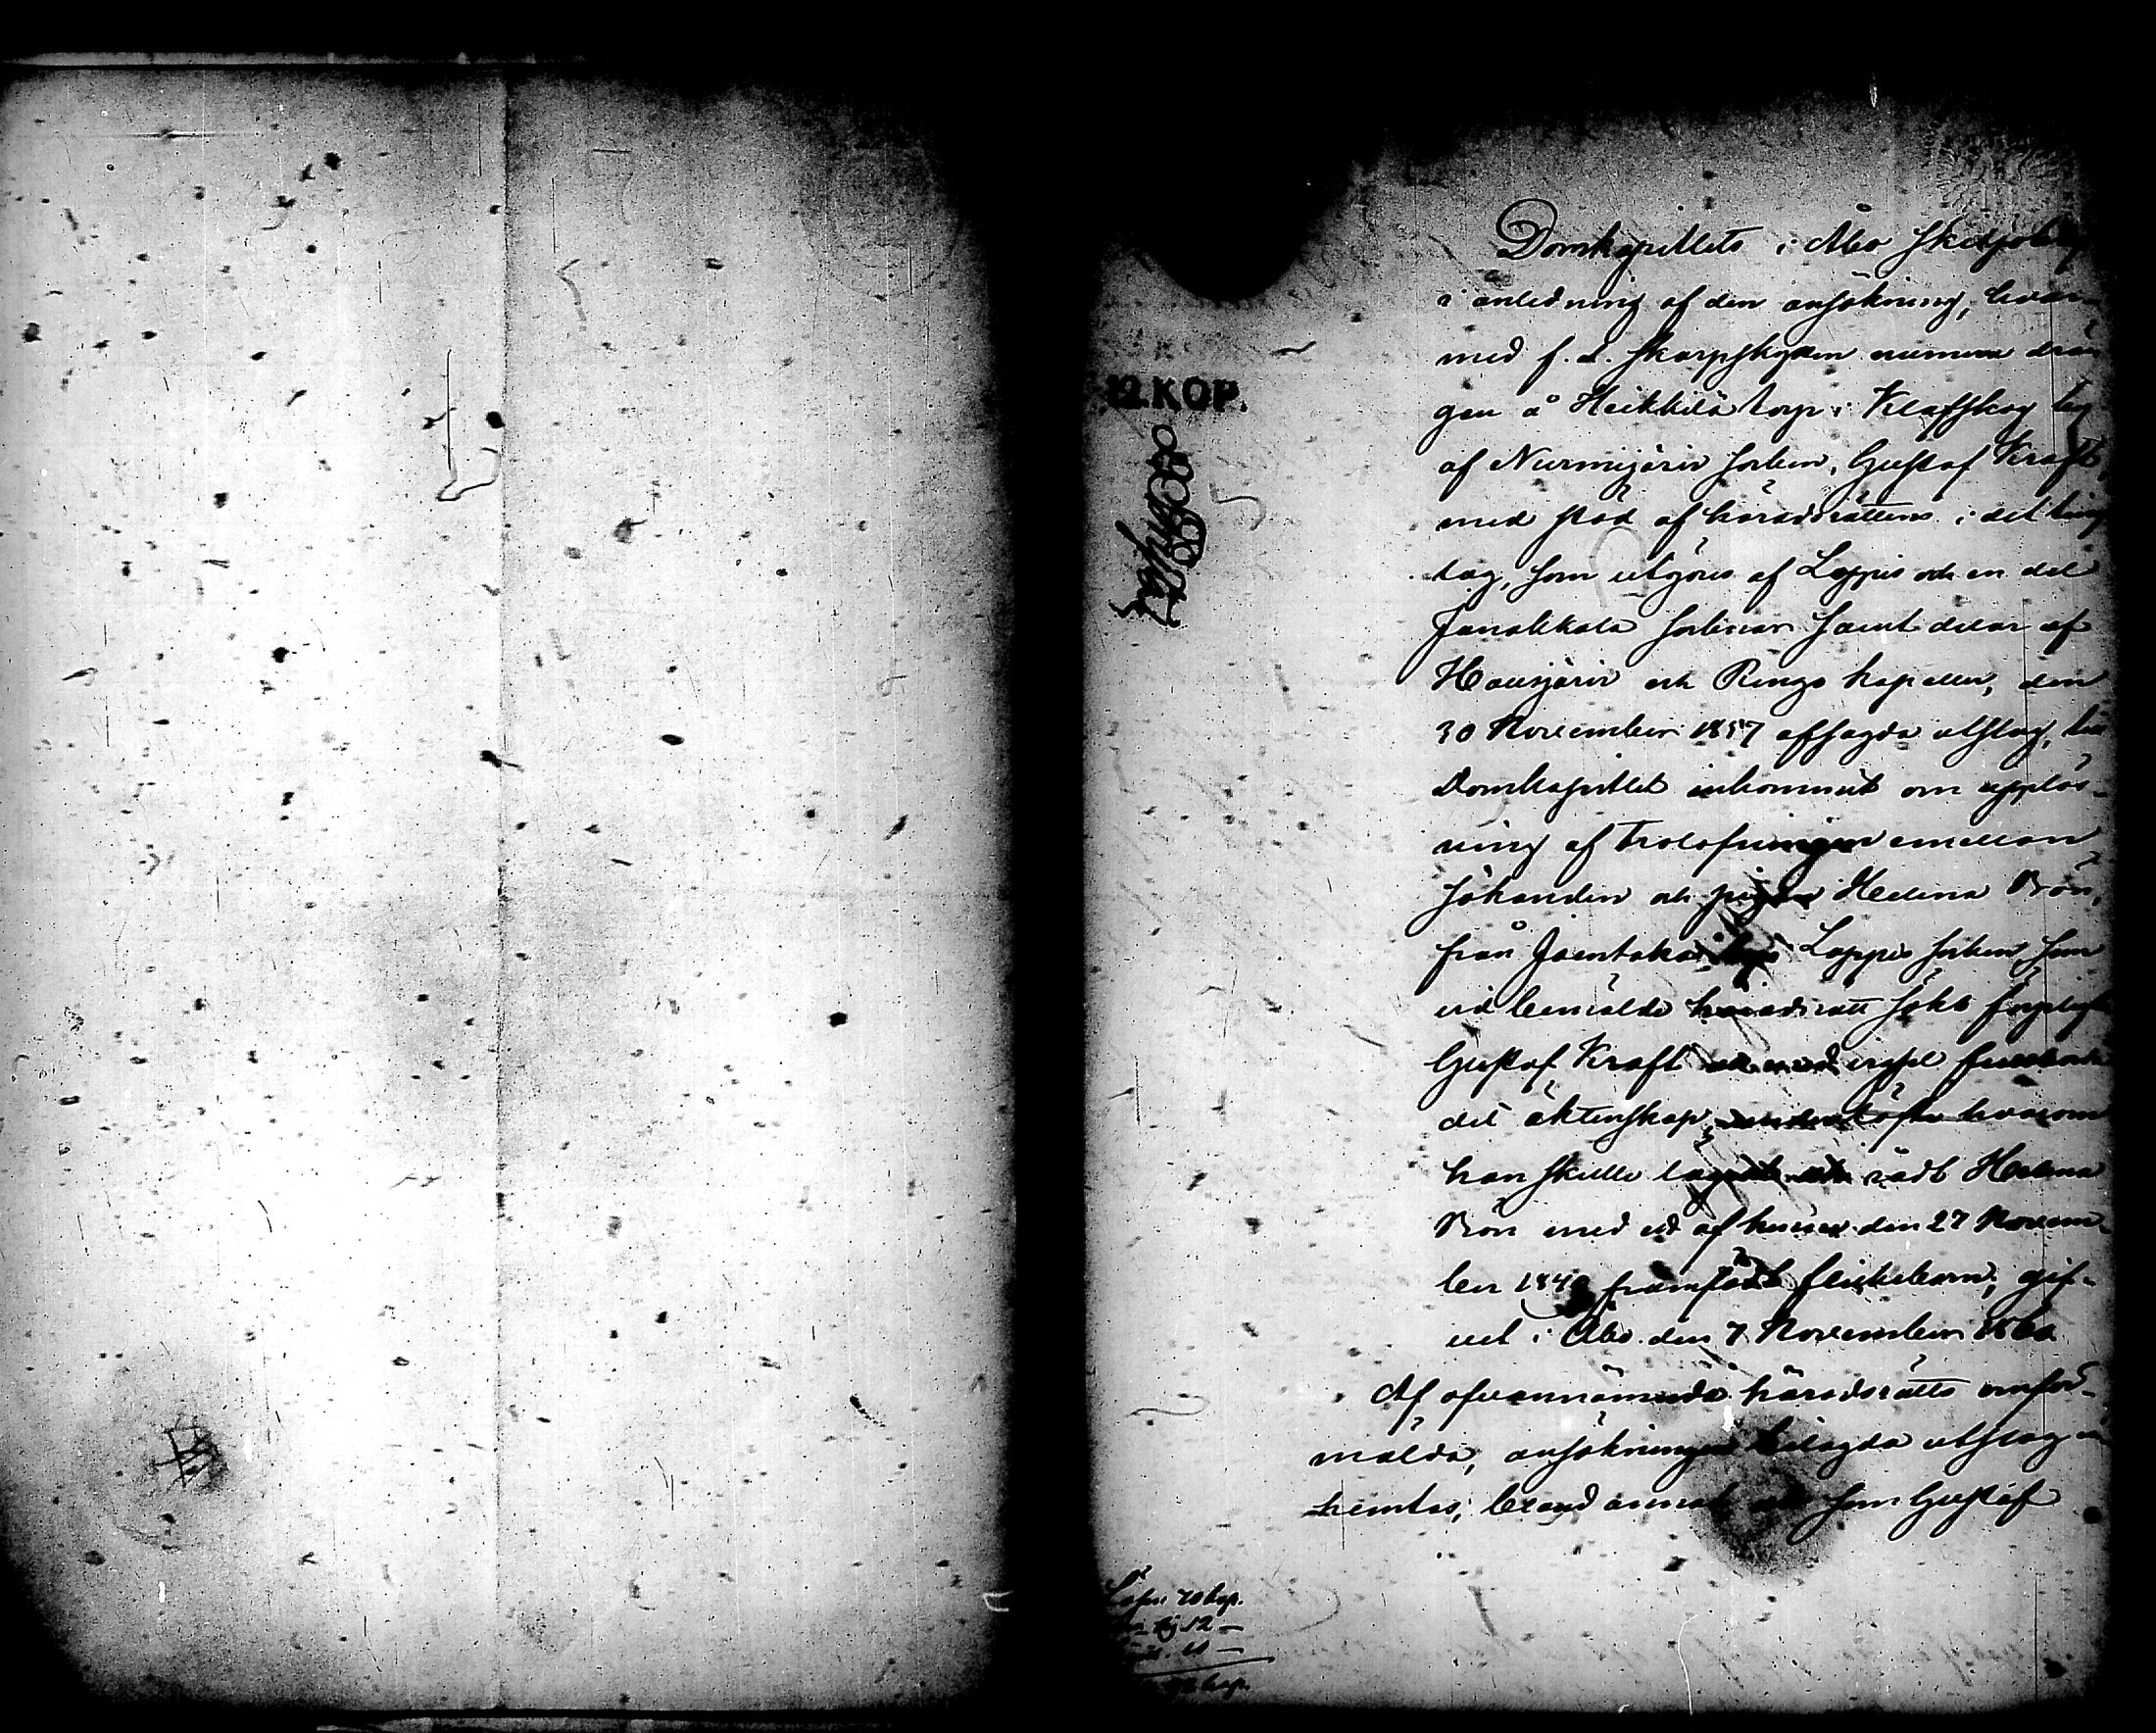 12.KOP.
Domkapitlets i Åbo skiljobref
i anledning af den ansökning, hvar-
med f. d. skarpskytten numera drän
gen å Heikkilä torp i Klafskog by
af Nurmijärvi socken, Gustaf Kraft,
med stöd af häradsrättens i det ting
lag, som utgöres af Loppis och en del
Janakkala socknar samt delar af
Hausjärvi och Rengo kapeller, den
30 November 1857 afsagda utslag, hos
Domkapitlet inkommit om upplös-
ning af trolofningen emellan
sökanden och pigan Helena Brön,
från Jäentaka by i Loppis socken, som
vid bemälde häradsrätt sökt
Gustaf Kraft
det äktenskap, hvarom
han skulle rådt Helena
Brön med ed af henne den 27 Novem-
ber 184 framfödt flickebarn; gif-
vet i Åbo den 7 November 1860
Af ofvannämnda häradsrätts omför-
mälda, ansökningen bilagda utslag in
hemtas, bland annat att som Gustaf
Lösen 70 kop.
12 —
kop.